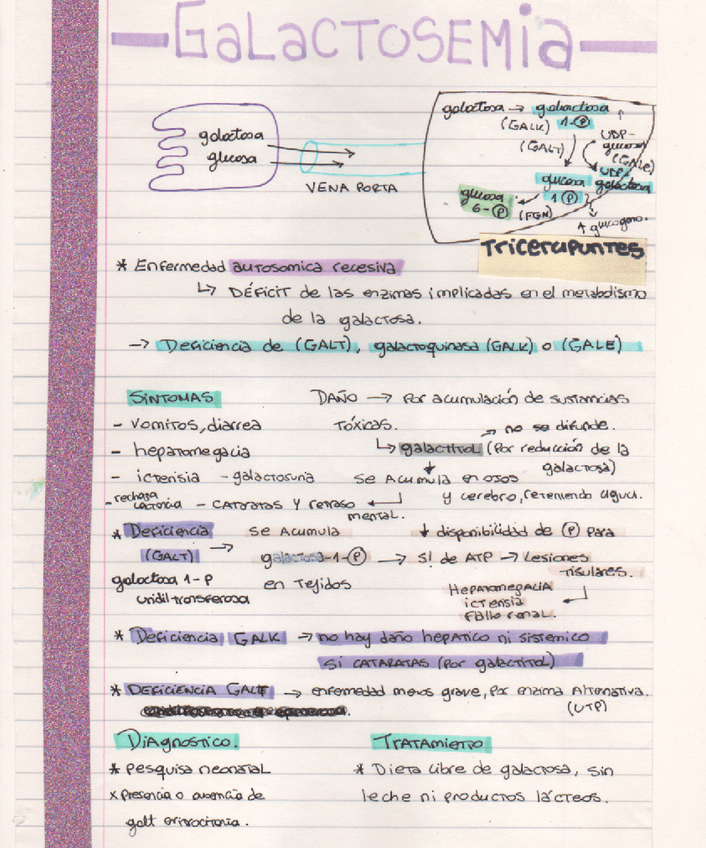 GALACTOSEMIA
galactosa
glucosa
VENA PORTA
galactosa → galactosa
(GALK) 1-P
(GALT)
UDP-
glucosa
(GALE)
UDP
galactosa
glucosa
1 P
glucosa
6-P
(FGN)
↑ glucogeno.
Tricerapuntes
* Enfermedad autosomica recesiva
↳ DÉFICIT de las enzimas implicadas en el metabolismo
de la galactosa.
→ Deficiencia de (GALT), galactoquinasa (GALK) o (GALE)
SINTOMAS
- vomitos, diarrea
- hepatomegacia
- ictensia - galactosuria
- rechaso
lactancia - CATARATAS Y retraso
mental.
DAÑO → Por acumulación de sustancias
TÓXICAS.
→ no se difunde.
↳ galactitol (Por reducción de la
galactosa)
se Acumula en ojos
y cerebro, reteniendo agua.
* Deficiencia
(GALT) →
galactosa 1-P
uridil-transferosa
se Acumula
galactosa-1-P →
en Tejidos
↓ disponibilidad de P para
S! de ATP → Lesiones
Tisulares.
Hepatomegalia
ictensia
Fallo renal.
* Deficiencia GALK → no hay daño hepatico ni sistemico
SI CATARATAS (Por galactitol)
* DEFICIENCIA GALE → enfermedad menos grave, Por enzima Alternativa.
(UTP)
Diagnostico.
* Pesquisa neonatal
x presencia o ausencia de
galt eritrocitaria.
TRATAMIENTO
* Dieta libre de galactosa, sin
leche ni productos lácteos.